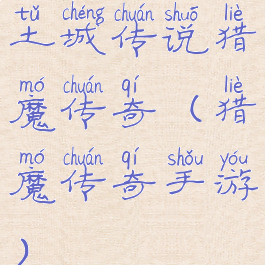 tǔ chéng chuán shuō liè
土城传说猎
mó chuán qí liè
魔传奇(猎
mó chuán qí shǒu yóu
魔传奇手游
)